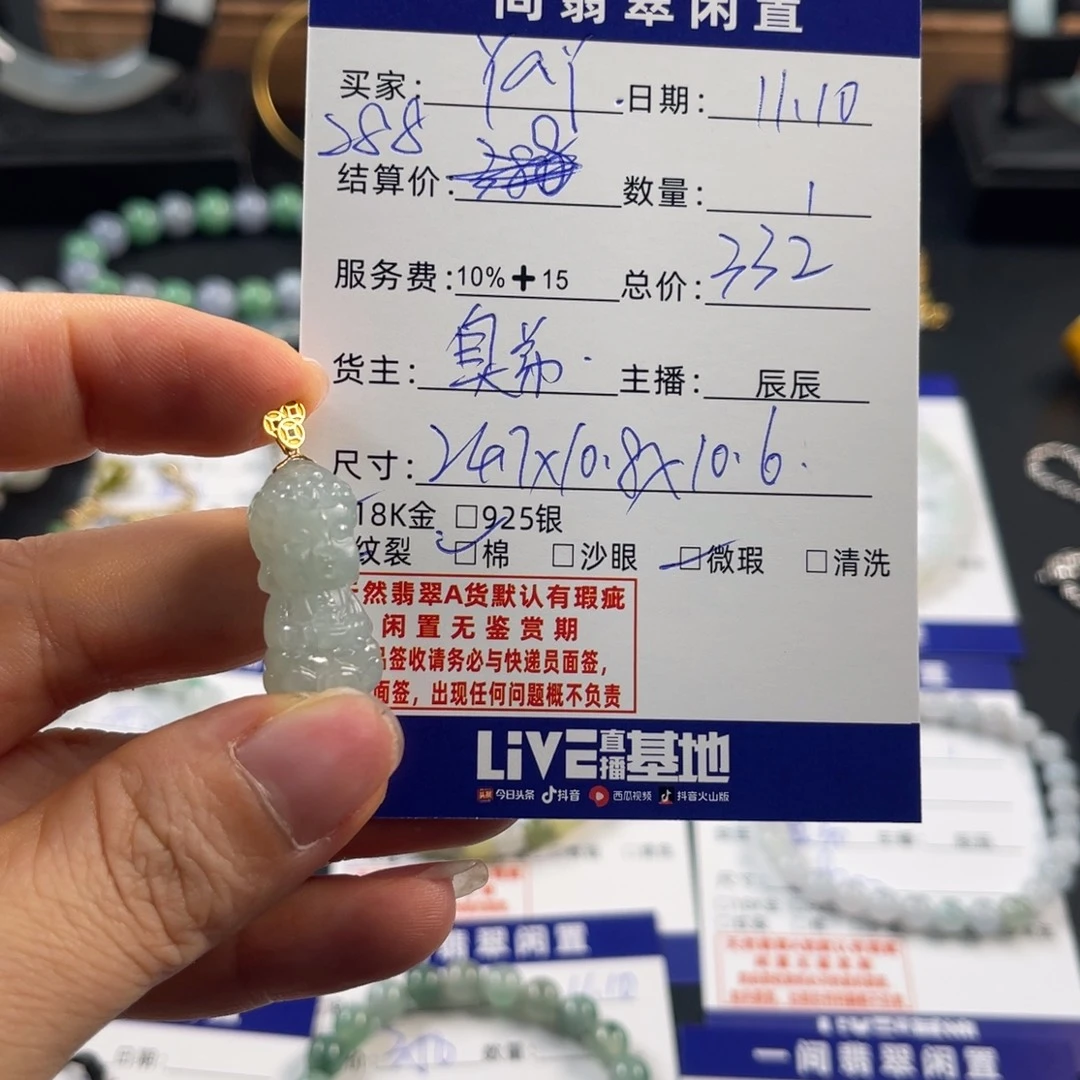 间翡翠闲置
买家: yay 日期: 11.10
288
结算价: 数量: 1
服务费:10%+15 总价: 332
货主: 臭弟 主播: 辰辰
尺寸: 24.7x10.8x10.6
18K金 □925银
纹裂 □棉 □沙眼 □微瑕 □清洗
然翡翠A货默认有瑕疵
闲置无鉴赏期
品签收请务必与快递员面签,
面签,出现任何问题概不负责
LiVE直播基地
今日头条 抖音 西瓜视频 抖音火山版
翡翠闲置
LiVE基地
一间翡翠闲置